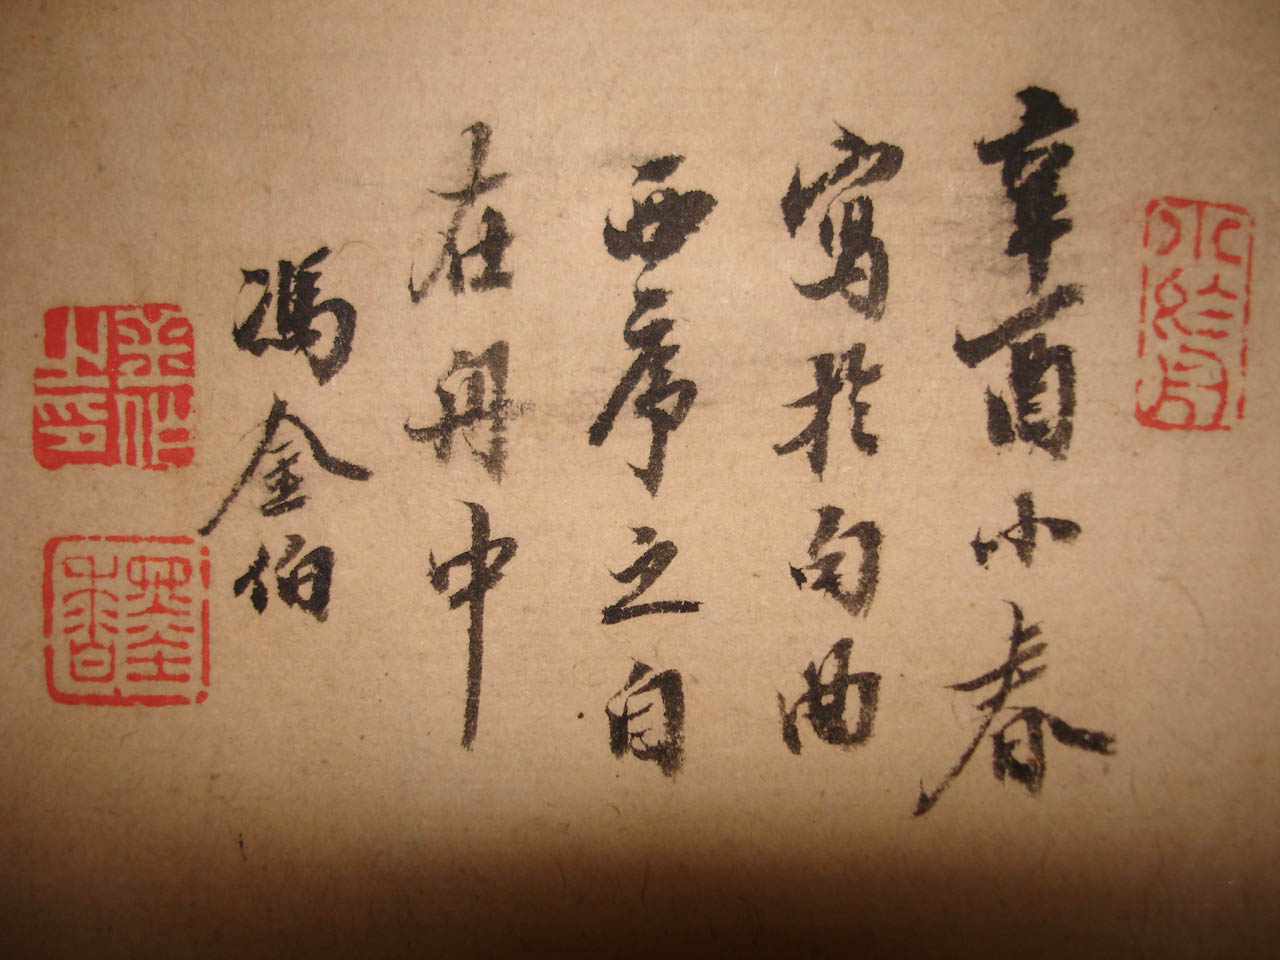 辛酉小春
寫於句曲
西席之自
在舟中
馮金伯